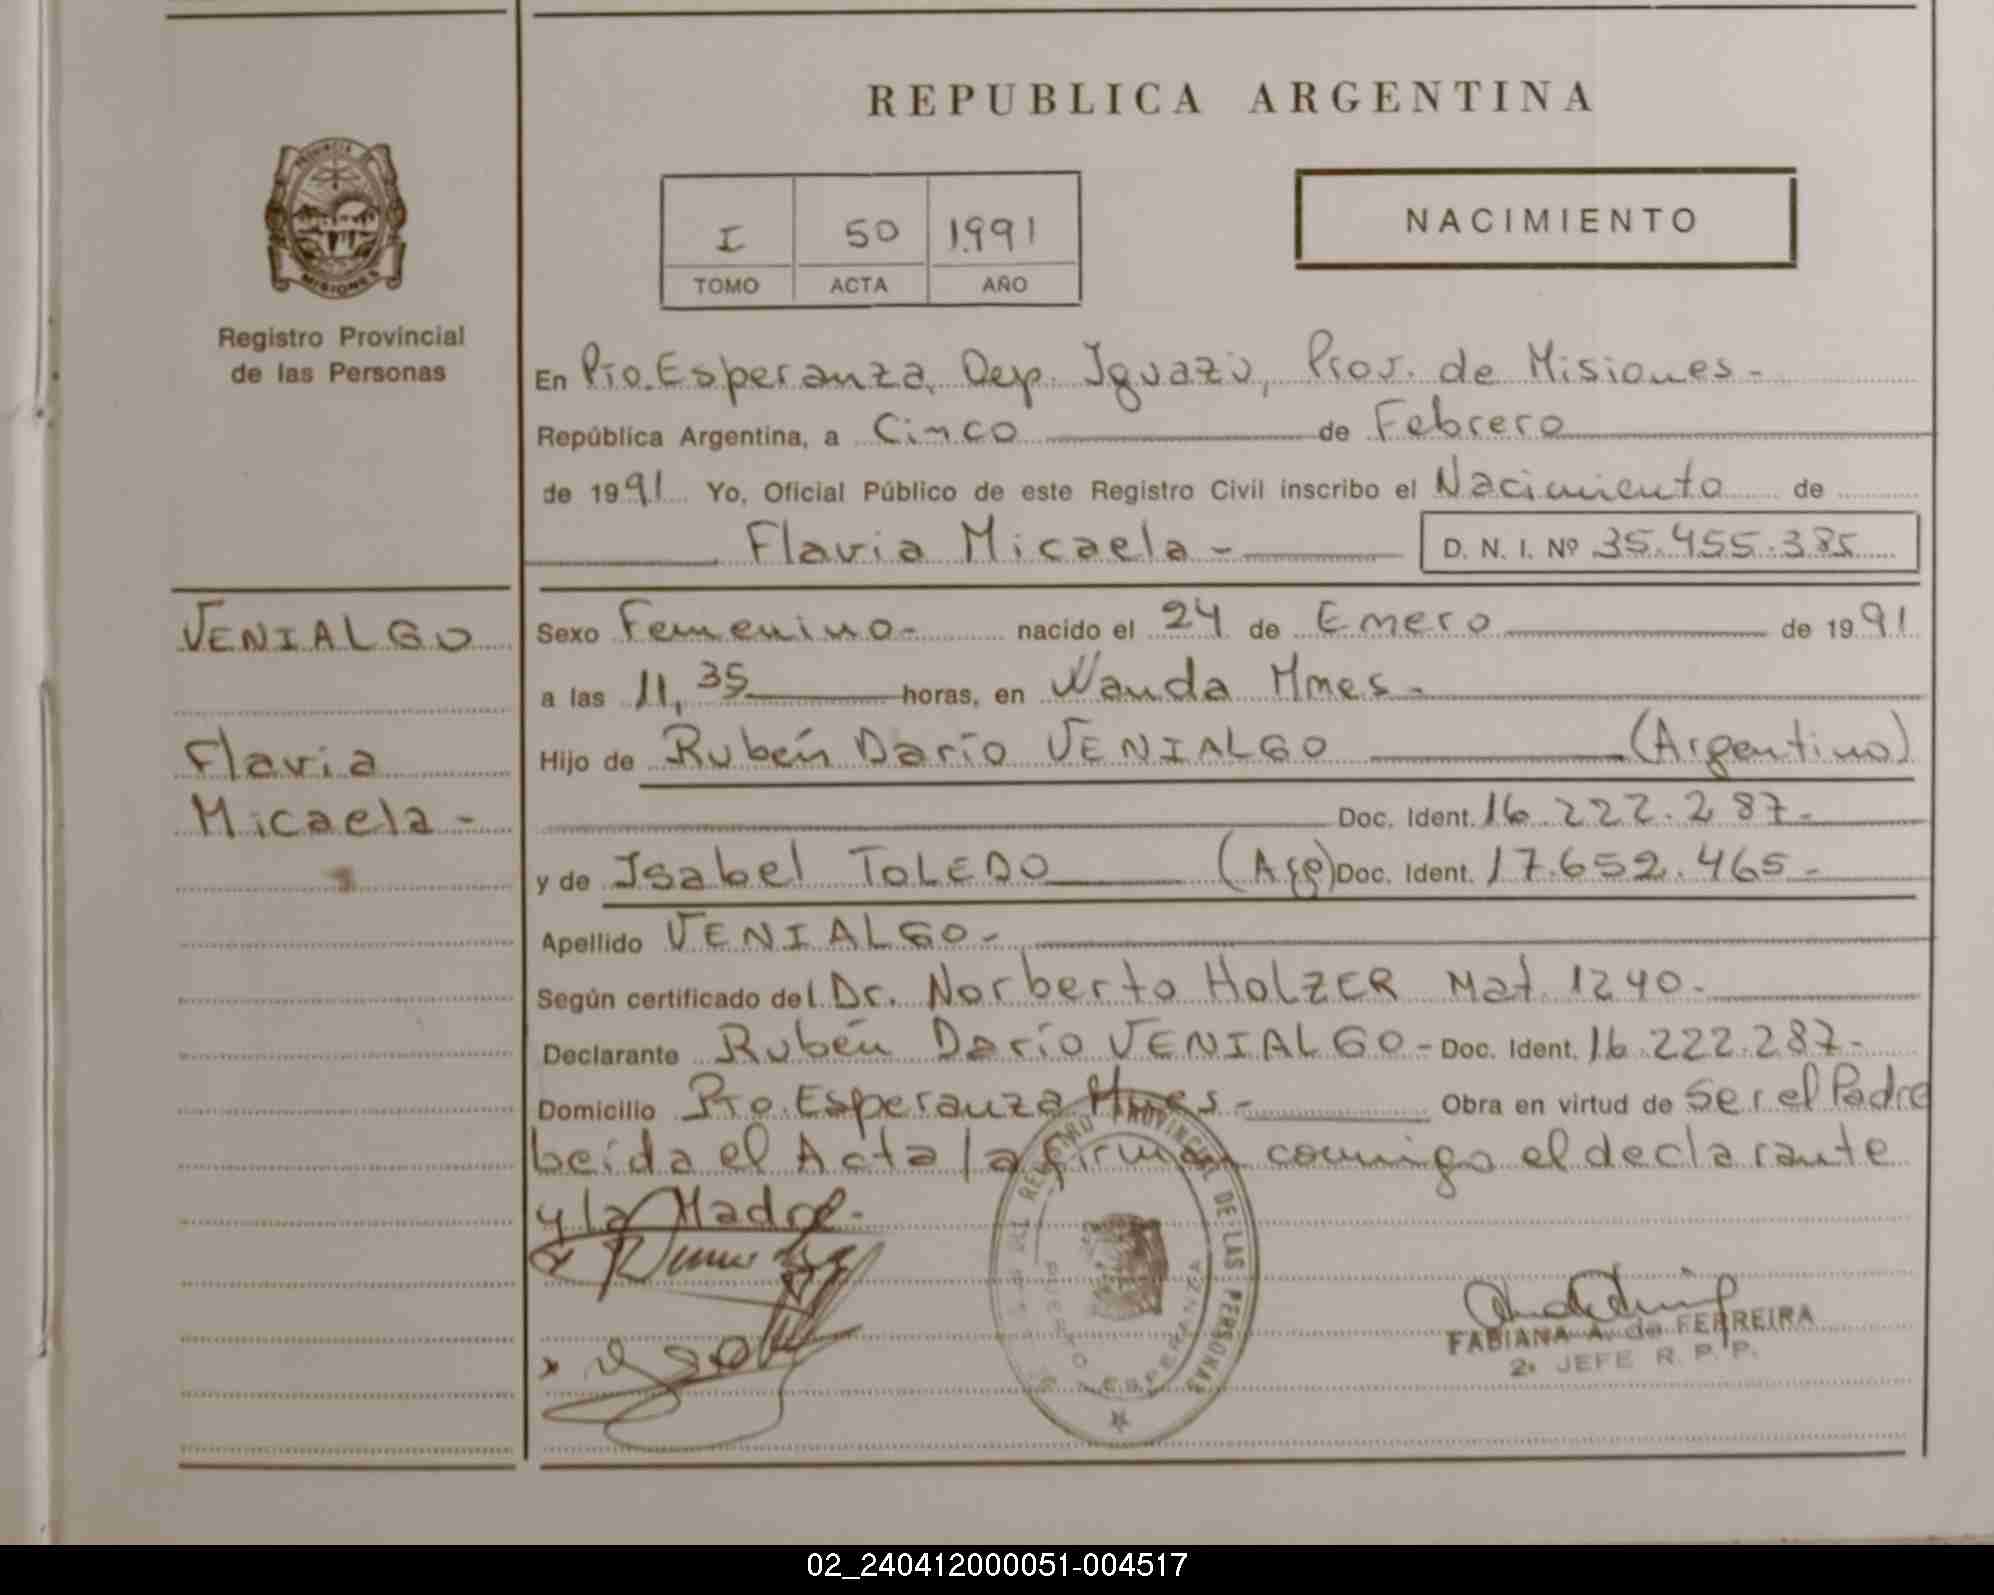 REPUBLICA ARGENTINA
PROVINCIA DE
MISIONES
Registro Provincial
de las Personas
I 50 1991
TOMO ACTA AÑO
NACIMIENTO
En Pto. Esperanza, Dep. Iguazú, Prov. de Misiones-
República Argentina, a Cinco de Febrero
de 1991 Yo, Oficial Público de este Registro Civil inscribo el Nacimiento de
Flavia Micaela - D. N. I. Nº 35.455.385
VENIALGO
Flavia
Micaela -
Sexo Femenino- nacido el 24 de Enero de 1991
a las 11,35 horas, en Wanda Mnes-
Hijo de Rubén Darío VENIALGO (Argentino)
Doc. Ident. 16.222.287-
y de Isabel TOLEDO (Arg) Doc. Ident. 17.652.465-
Apellido VENIALGO-
Según certificado del Dr. Norberto HOLZER Mat 1240-
Declarante Rubén Darío VENIALGO- Doc. Ident. 16.222.287-
Domicilio Pto. Esperanza Mnes- Obra en virtud de Ser el Padre
Leída el Acta la firman conmigo el declarante
y la Madre-
REGISTRO PROVINCIAL DE LAS PERSONAS
PUERTO ESPERANZA
FABIANA A. de FERREIRA
2º JEFE R. P. P.
02_240412000051-004517